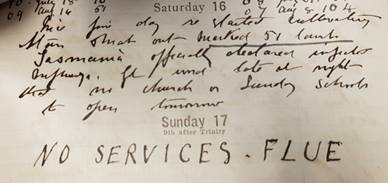 Saturday 16
Nice fine day re started cultivating
Stan shut out marked 51 lambs
Tasmania officially declared infected
Influenza. Got word late at night
that no church or Sunday Schools
to open tomorrow
Sunday 17
9th after Trinity
NO SERVICES. FLUE